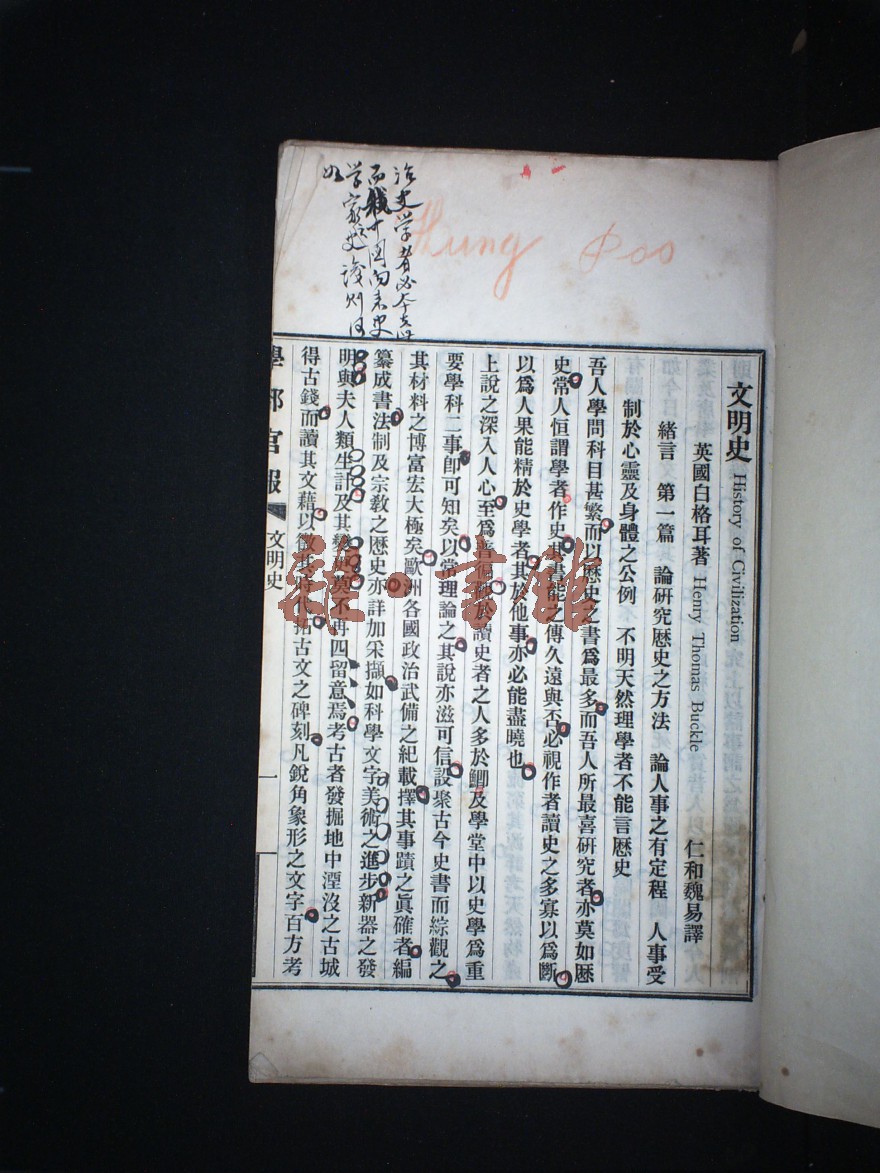 文明史 History of Civilization
英國白格耳著 Henry Thomas Buckle 仁和魏易譯
緒言 第一篇 論硏究歷史之方法 論人事之有定程 人事受
制於心靈及身體之公例 不明天然理學者不能言歷史
吾人學問科目甚繁而以歷史之書爲最多而吾人所最喜硏究者亦莫如歷
史常人恒謂學者作史其書能之傳久遠與否必視作者讀史之多寡以爲斷
以爲人果能精於史學者其於他事亦必能盡曉也
上說之深入人心至爲普徧
於讀史者之人多於鯽及學堂中以史學爲重
要學科二事卽可知矣以常理論之其說亦滋可信設聚古今史書而綜觀之
其材料之博富宏大極矣歐洲各國政治武備之紀載擇其事蹟之眞確者編
纂成書法制及宗敎之歷史亦詳加采擷如科學文字美術之進步新器之發
明與夫人類生計及其
莫不再四留意焉考古者發掘地中湮沒之古城
得古錢而讀其文藉以徵其時代拓古文之碑刻凡銳角象形之文字百方考
學部官報 文明史 一
治史学者必本
而
中国向来史
学家
则
Hung Poo
雜·書館